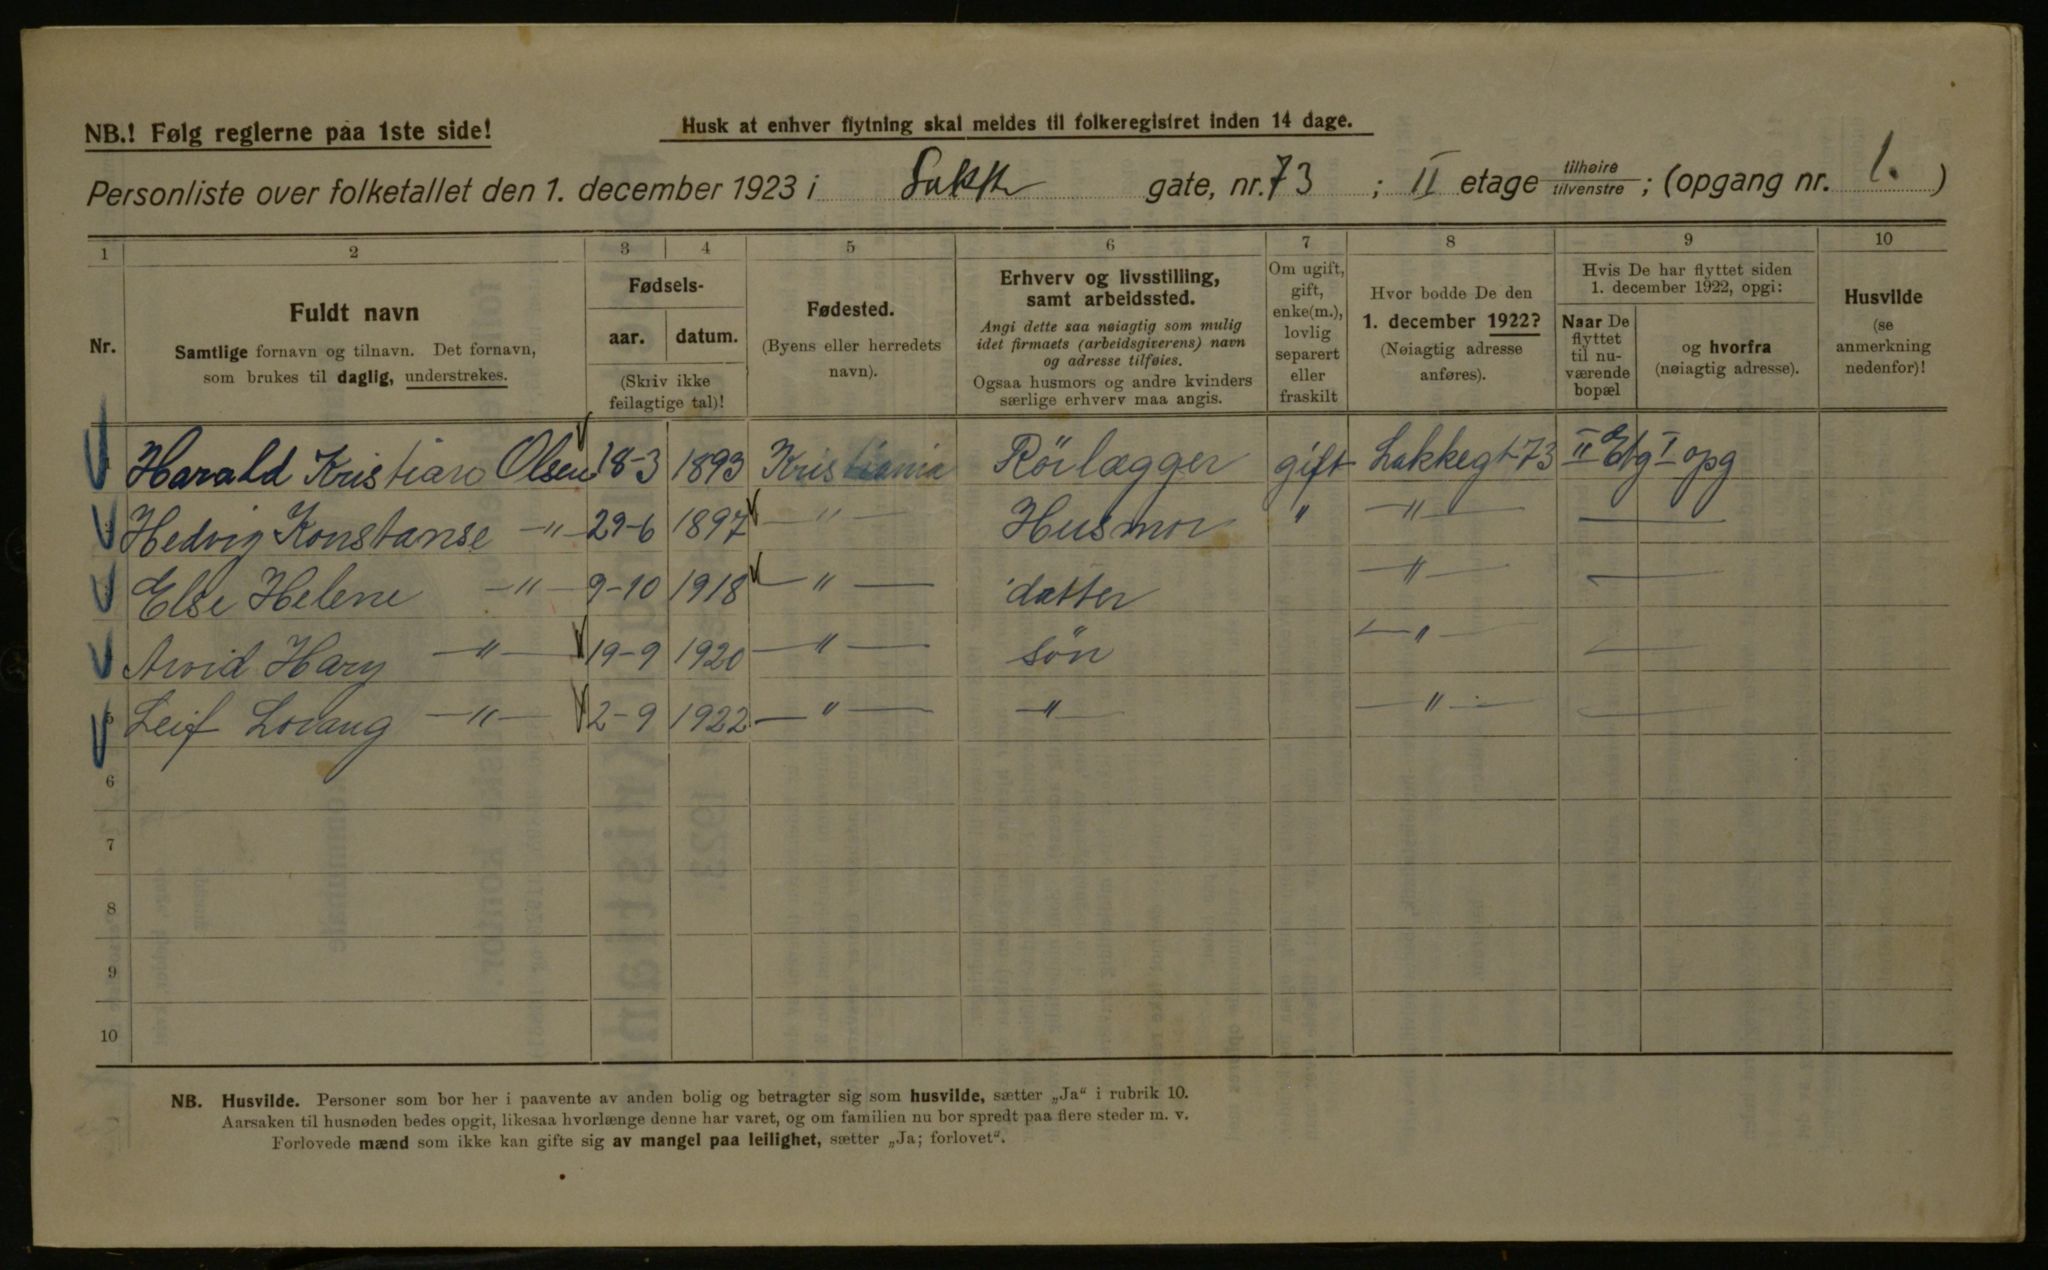 NB.! Følg reglerne paa 1ste side!
Husk at enhver flytning skal meldes til folkeregistret inden 14 dage.
Personliste over folketallet den 1. december 1923 i Lakke gate, nr. 73 ; II etage tilhøire tilvenstre ; (opgang nr. 1. )
1 2 3 4 5 6 7 8 9 10
Nr.
Fuldt navn
Samtlige fornavn og tilnavn. Det fornavn,
som brukes til daglig, understrekes.
Fødsels-
aar. datum.
(Skriv ikke
feilagtige tal)!
Fødested.
(Byens eller herredets
navn).
Erhverv og livsstilling,
samt arbeidssted.
Angi dette saa nøiagtig som mulig
idet firmaets (arbeidsgiverens) navn
og adresse tilføies.
Ogsaa husmors og andre kvinders
særlige erhverv maa angis.
Om ugift,
gift,
enke(m.),
lovlig
separert
eller
fraskilt
Hvor bodde De den
1. december 1922?
(Nøiagtig adresse
anføres).
Hvis De har flyttet siden
1. december 1922, opgi:
Naar De
flyttet
til nu-
værende
bopæl
og hvorfra
(nøiagtig adresse).
Husvilde
(se
anmerkning
nedenfor)!
Harald Kristian Olsen 18-3 1893 Kristiania Rörlægger gift Lakkegt 73 II Etg I opg
Hedvig Konstanse —"— 29-6 1897 —"— Husmor " —"—
Else Helene —"— 9-10 1918 —"— datter —"—
Arvid Hary —"— 19-9 1920 —"— sön —"—
5 Leif Lorang —"— 2-9 1922 —"— —"— —"—
6
7
8
9
10
NB. Husvilde. Personer som bor her i paavente av anden bolig og betragter sig som husvilde, sætter „Ja“ i rubrik 10.
Aarsaken til husnøden bedes opgit, likesaa hvorlænge denne har varet, og om familien nu bor spredt paa flere steder m. v.
Forlovede mænd som ikke kan gifte sig av mangel paa leilighet, sætter „Ja; forlovet“.